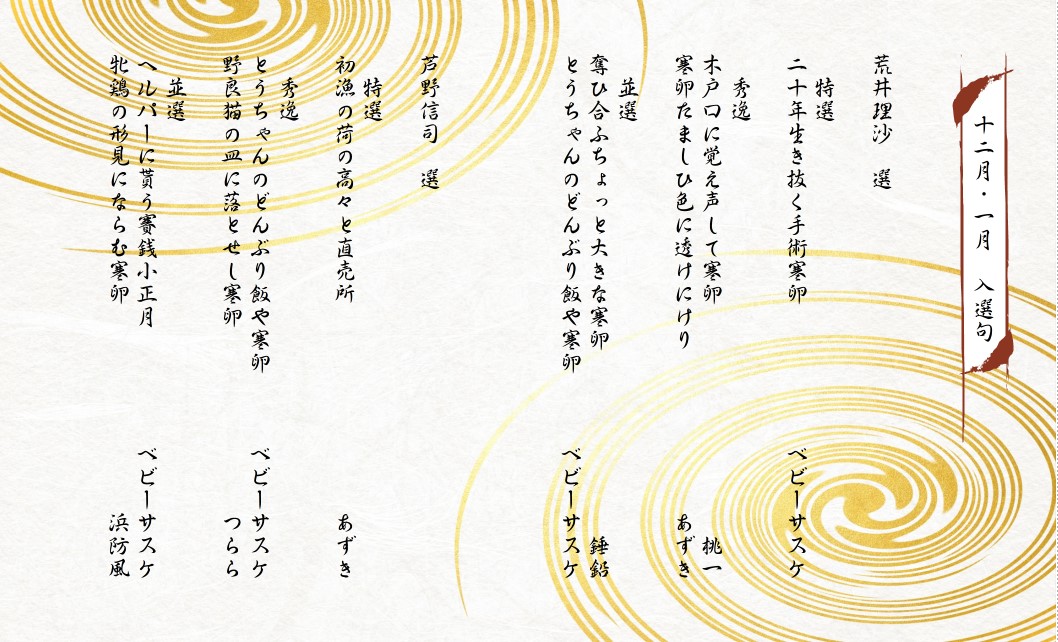 十二月・一月　入選句
荒井理沙　選
特選
二十年生き抜く手術寒卵　ベビーサスケ
秀逸
木戸口に覚え声して寒卵　桃一
寒卵たましひ色に透けにけり　あずき
並選
奪ひ合ふちょっと大きな寒卵　錘鉛
とうちゃんのどんぶり飯や寒卵　ベビーサスケ
芦野信司　選
特選
初漁の荷の高々と直売所　あずき
秀逸
とうちゃんのどんぶり飯や寒卵　ベビーサスケ
野良猫の皿に落とせし寒卵　つらら
並選
ヘルパーに貰う賽銭小正月　ベビーサスケ
牝鶏の形見にならむ寒卵　浜防風